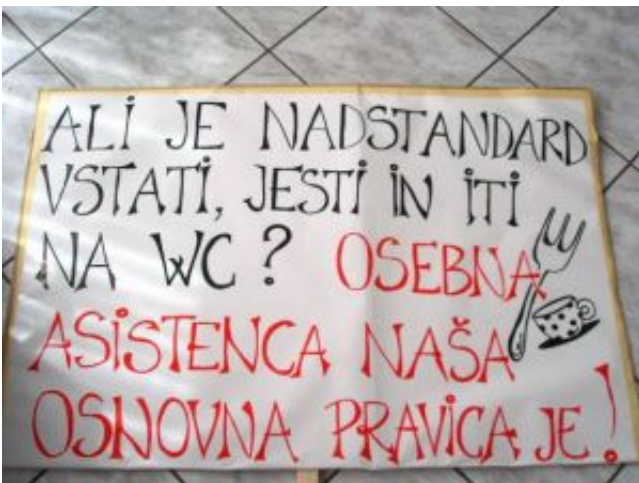 ALI JE NADSTANDARD
VSTATI, JESTI IN ITI
NA WC? OSEBNA
ASISTENCA NAŠA
OSNOVNA PRAVICA JE!